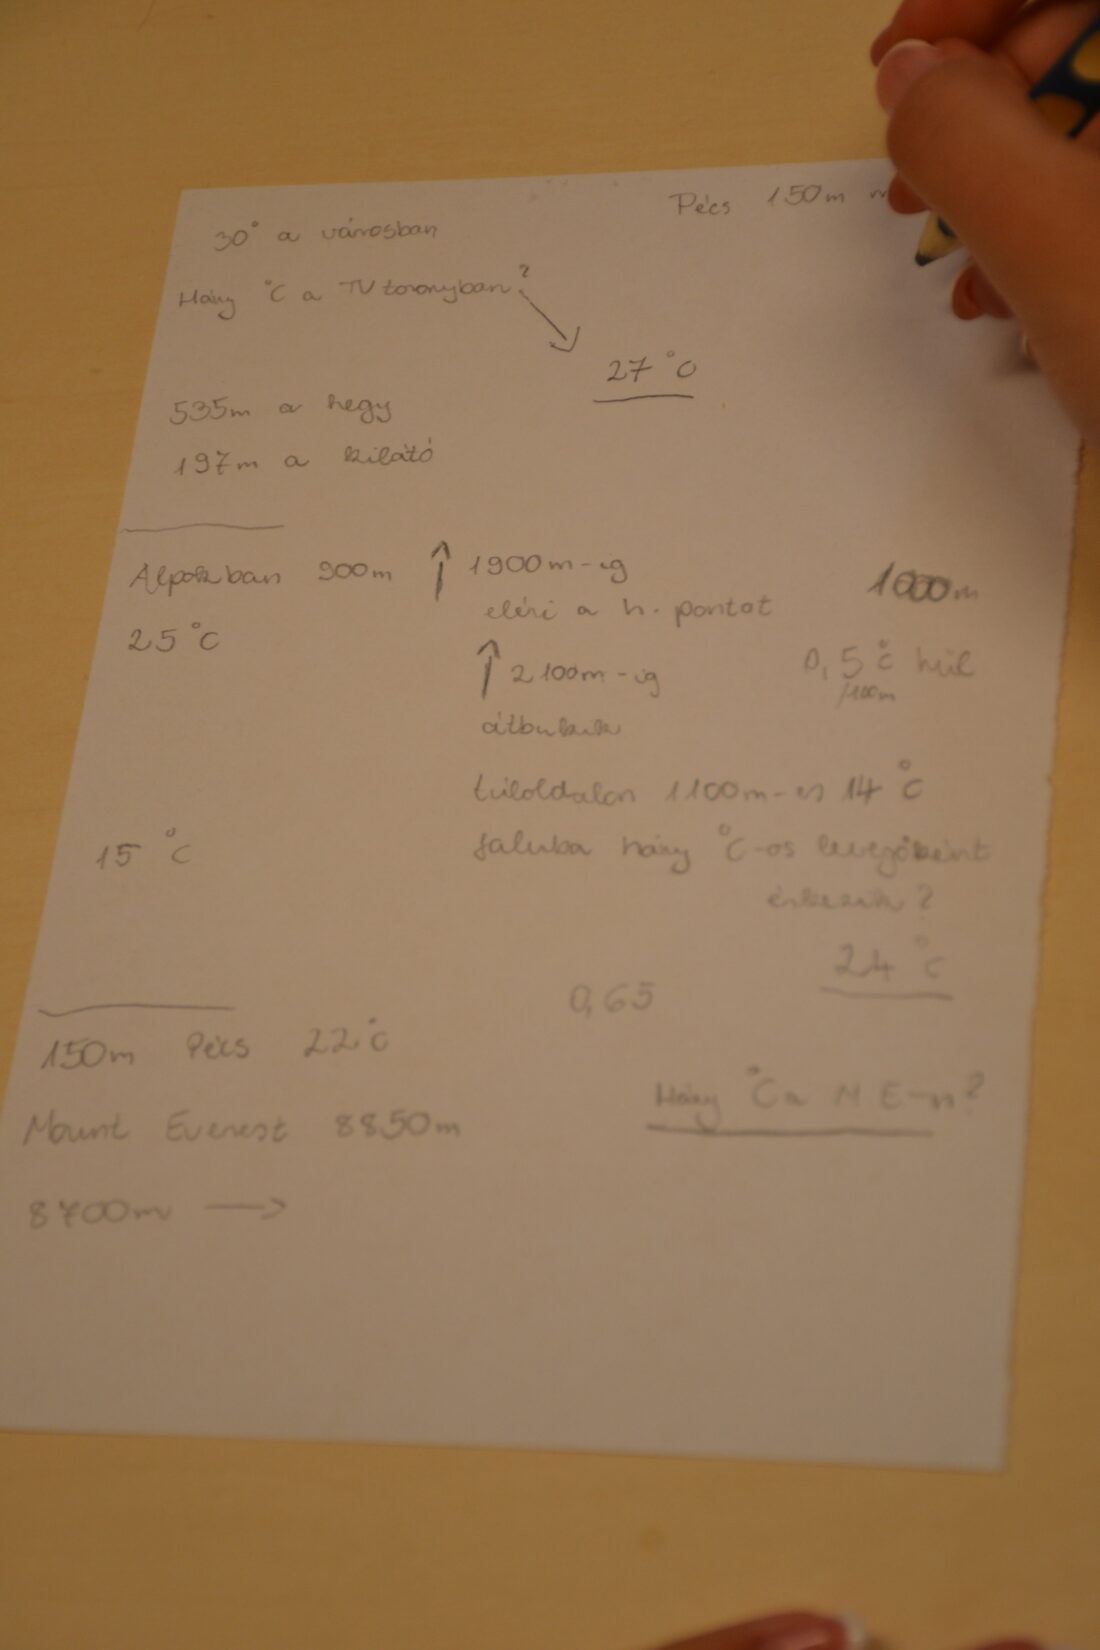 Pécs 150m
30° a városban
Hány °C a TV toronyban?
27 °C
535m a hegy
197m a kilátó
Alpokban 900m ↑ 1900m-ig
eléri a h. pontot
1000m
25 °C
↑ 2100m-ig
0,5 °C hűl
/100m
átbukik
túloldalon 1100m-en 14 °C
15 °C
faluba hány °C-os levegőként
érkezik?
24 °C
0,65
150m Pécs 22 °C
Hány °C a M E-n?
Mount Everest 8850m
8700m →